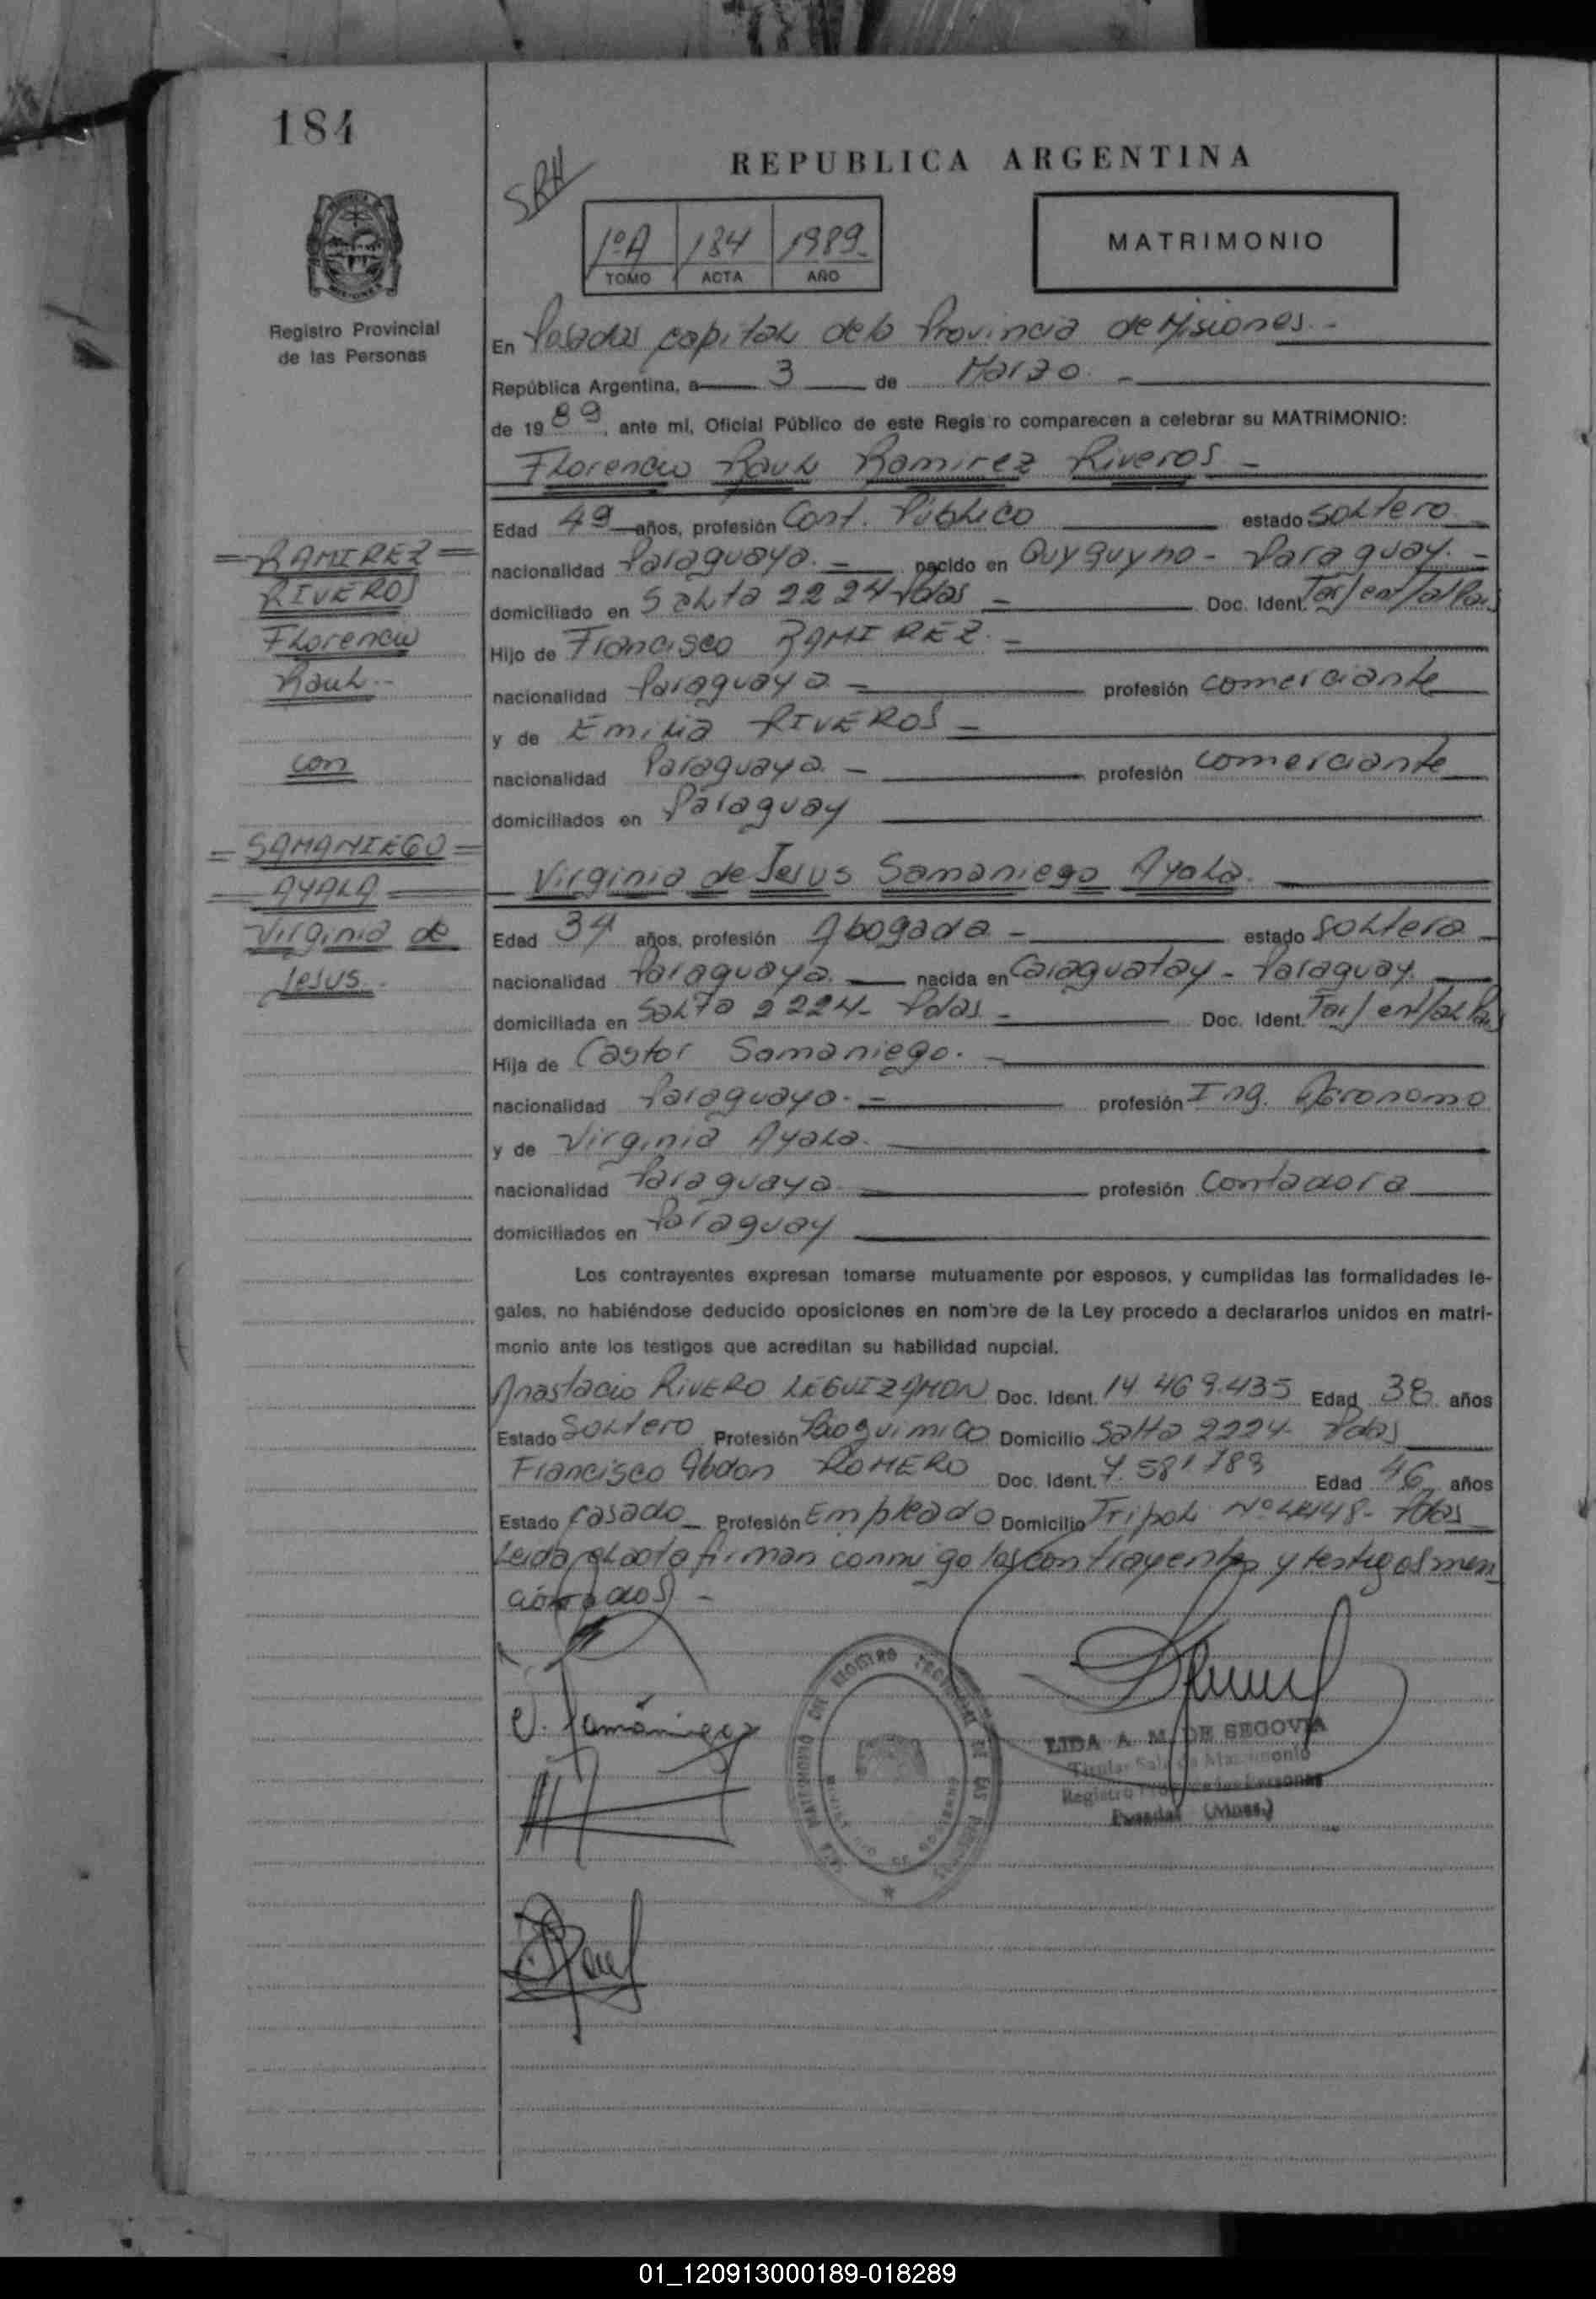 184
REPUBLICA ARGENTINA
SRH
1ºA 184 1989
TOMO ACTA AÑO
MATRIMONIO
Registro Provincial
de las Personas
En Posadas capital de la Provincia de Misiones.-
República Argentina, a 3 de Marzo.-
de 1989, ante mi, Oficial Público de este Regis ro comparecen a celebrar su MATRIMONIO:
Florencio Raul Ramirez Riveros -
Edad 49 años, profesión Cont. Público estado soltero
nacionalidad Paraguaya.- nacido en Quyquyho - Paraguay.-
domiciliado en Salta 2224 Pdas - Doc. Ident.
Hijo de Francisco RAMIREZ.-
nacionalidad Paraguaya - profesión comerciante
y de Emilia RIVEROS -
nacionalidad Paraguaya - profesión comerciante
domiciliados en Paraguay
= RAMIREZ =
RIVEROS
Florencio
Raul.-
con
= SAMANIEGO =
AYALA
Virginia de
Jesus.
Virginia de Jesus Samaniego Ayala.
Edad 34 años, profesión Abogada - estado soltera
nacionalidad Paraguaya. nacida en Caraguatay - Paraguay.
domiciliada en Salta 2224- Pdas - Doc. Ident.
Hija de Castor Samaniego. -
nacionalidad Paraguaya.- profesión Ing. Agronomo
y de Virginia Ayala.
nacionalidad Paraguaya profesión Contadora
domiciliados en Paraguay
Los contrayentes expresan tomarse mutuamente por esposos, y cumplidas las formalidades le-
gales, no habiéndose deducido oposiciones en nombre de la Ley procedo a declararlos unidos en matri-
monio ante los testigos que acreditan su habilidad nupcial.
Anastacio RIVERO LEGUIZAMON Doc. Ident. 14.469.435 Edad 38 años
Estado Soltero Profesión Bioquimico Domicilio Salta 2224- Pdas
Francisco Abdon ROMERO Doc. Ident. 7.581789 Edad 46 años
Estado casado Profesión Empleado Domicilio Tripoli Nº 4448- Pdas
Leida el acta firman conmigo los contrayentes y testigos men
cionados -
V. Samaniego
LIDA A. M. DE SEGOVIA
Titular Sala de Matrimonio
Registro Prov. de las Personas
Posadas (Mnes.)
01_120913000189-018289